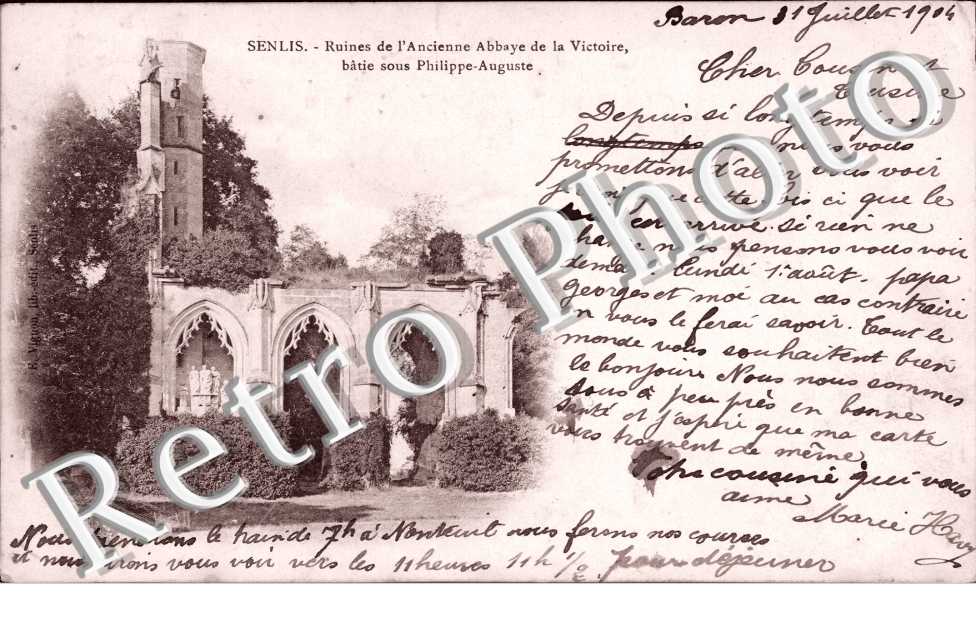 SENLIS. - Ruines de l'Ancienne Abbaye de la Victoire,
bâtie sous Philippe-Auguste
Baron 31 Juillet 1904
Cher Cousin et
Cousine
Depuis si longtemps
longtemps nous vous
promettons d'aller vous voir
cette fois ci que le
arrivé. si rien ne
change nous pensons vous voir
demain lundi 1er août. papa
georges et moi au cas contraire
on vous le ferai savoir. Tout le
monde vous souhaitent bien
le bonjour. Nous nous sommes
tous à peu près en bonne
santé et j'espère que ma carte
vous trouvent de même
cousine qui vous
aime
Marie
Nous prendrons le train de 7h à Nanteuil nous ferons nos courses
et nous irons vous voir vers les 11 heures 11h 1/2 pour déjeuner
E. Vignon, lib.-édit. Senlis
Retro Photo